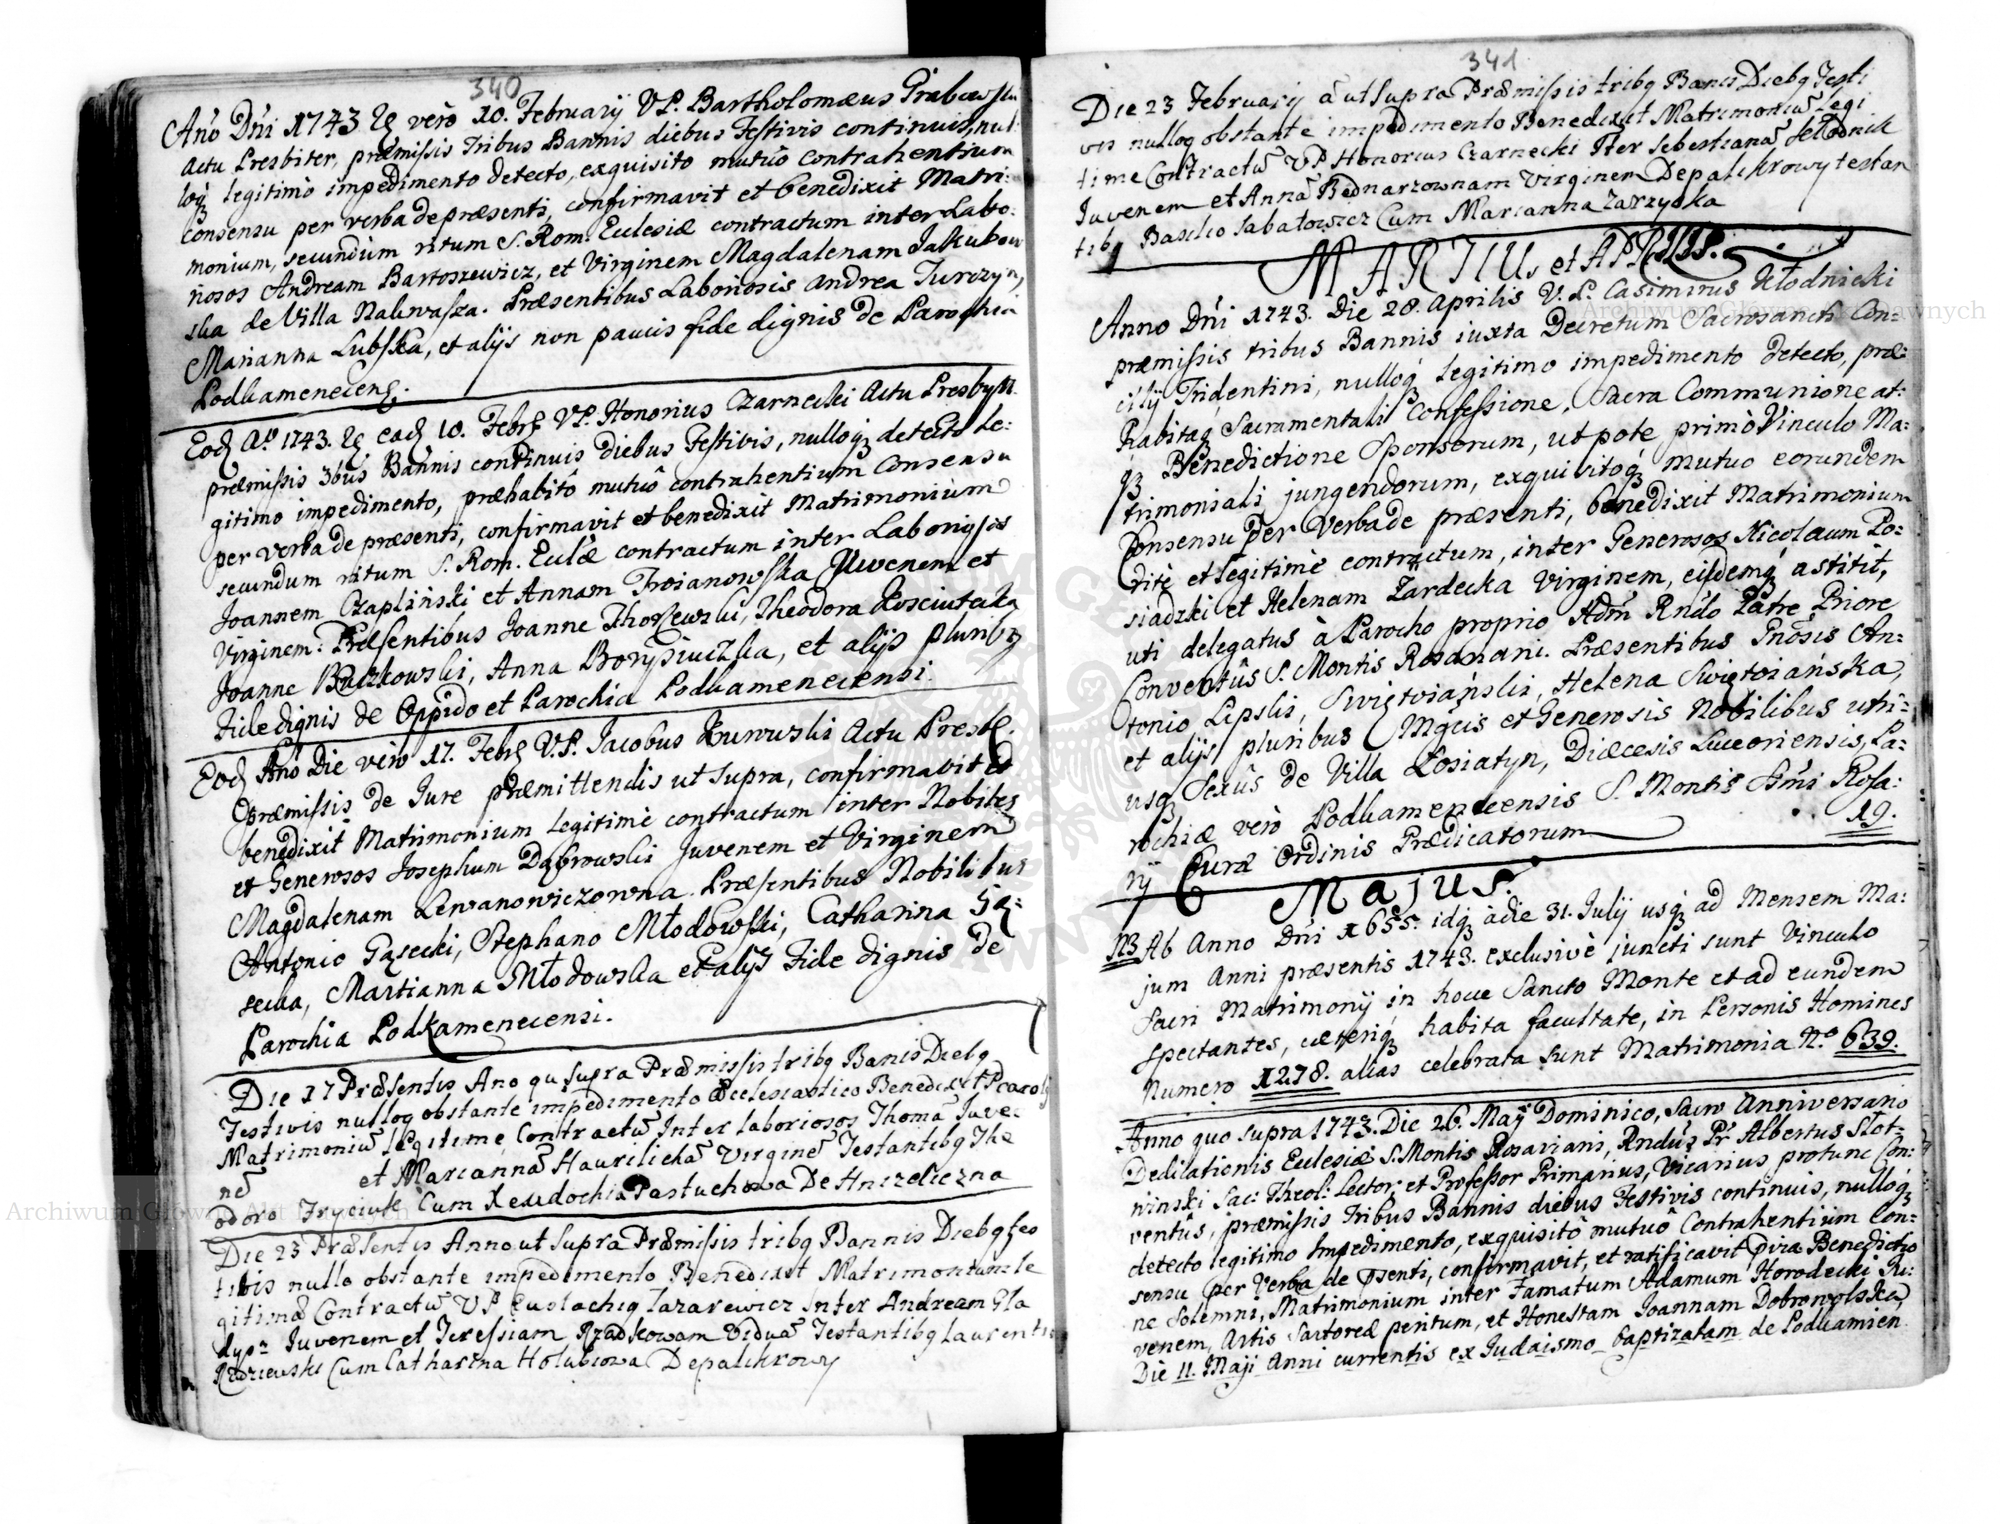 340
Año Dñi 1743 Q vero 10. February V.P. Bartholomæus Grabowski
Actu Presbiter, præmissis Tribus Bannis diebus Festivis continuis, nul:
loq legitimò impedimento detecto, exquisito mutuô contrahentium
consensu per verba de præsenti, confirmavit et benedixit Matri:
monium, secundum ritum S. Rom. Ecclesiæ contractum inter Labo:
riosos Andream Bartoszewicz, et Virginem Magdalenam Jakubow
ska de Villa Nakwasza. Præsentibus Laboriosis Andrea Turczyn,
Marianna Lubska, et alijs non paucis fide dignis de Parochia
Podkamenecens.
Eod Aº 1743. Q ead 10. Febr V.P. Honorius Czarnecki Actu Presbyter
præmissis 3bus Bannis continuis diebus Festivis, nulloq detecto le:
gitimo impedimento, præhabitô mutuô contrahentium consensu
per verba de præsenti, confirmavit et benedixit Matrimonium
secundum ritum S. Rom. Eclæ contractum inter Laboriosos
Joannem Czapliński et Annam Troianowska Juvenem et
Virginem: Præsentibus Joanne Thorzewski, Theodora Kosciutecka
Joanne Bulzkowski, Anna Borysiuczka, et alijs pluribq
Fide dignis de Oppido et Parochia Podkamenecensi.
Eod Año Die vero 17. Febr V.P. Jacobus Kurowski Actu Presb.
præmissis de Jure præmittendis ut supra, confirmavit et
benedixit Matrimonium legitimè contractum inter Nobiles
et Generosos Josephum Dąbrowski Juvenem et Virginem
Magdalenam Lewanowiczowna. Præsentibus Nobilibus
Antonio Gąsecki, Stephano Młodowski, Catharina Gą:
secka, Martianna Młodowska et alijs Fide dignis de
Parochia Podkamenecensi.
Die 17 Præsentis Ano qu supra Præmissis tribq Banis Diebq
Festivis nulloq obstante impedimento Ecclesiastico Benedixit P caroli
Matrimoniũ legitime Contractũ Inter laboriosos Thomã Juve
nẽ et Mariannã Haurilickã Virginẽ Testantibq The
odoro Fryciuk Cum Xeudochia Pastuchowa De Hnizdiczna
Die 23 Præsentis Anno ut supra Præmissis tribq Bannis Diebq fes
tibis nullo obstante impedimento Benedixit Matrimonium le
gitimè Contractũ V P Eustachiq Lazarewicz Inter Andream Gla
dysz Juvenem et Teressiam Rzadkowam Viduã Testantibq Laurentio
Rudziewski Cum Catharina Holubiowa De palikrowy
341
Die 23 February ã ut supra Præmissis tribq Banis Diebq Festi
vis nulloq obstante impedimento Benedixit Matrimoniũ Legi
time Contractũ V P Honorius Czarnecki Iter Sebestianã Skłodnik
Juvenem et Annã Bednarzownam Virginem De palikrowy testan
tibq Basilio Sabatowicz Cum Marianna Zarzycka
MARTIUs et APRILIS.
Anno Dñi 1743. Die 28. Aprilis V. P. Casimirus Kłodnicki
præmissis tribus Bannis iuxta Decretum Sacrosancti Con=
cilij Tridentini, nulloq legitimo impedimento detecto, præ:
habitaq Sacramentali Confessione, Sacra Communione at:
q Benedictione Sponsorum, utpote primò Vinculo Ma:
trimoniali jungendorum, exquisitoq mutuo eorundem
Consensu per Verba de præsenti, benedixit Matrimonium
ritè et legitimè contractum, inter Generosos Nicolaum Po:
siadzki et Helenam Zardecka Virginem, eisdemq astitit,
uti delegatus à Parocho proprio Adm Rndo Patre Priore
Conventûs S. Montis Rosariani. Præsentibus Gnosis An=
tonio Lipski, Swiętoiański, Helena Swiętoiańska,
et alijs pluribus Mgcis et Generosis Nobilibus utri=
usq Sexûs de Villa Łosiatyn, Diæcesis Luceoriensis, Pa=
rochiæ verò Podkamenecensis S. Montis Ssmi Rosa:
rij Curæ Ordinis Prædicatorum
19.
Majus.
NB Ab Anno Dñi 1655. idq à die 31. Julij usq ad Mensem Ma:
jum Anni præsentis 1743. exclusivè juncti sunt Vinculo
Sacri Matrimonij in hocce Sancto Monte et ad eundem
spectantes, cæterisq habita facultate, in Personis Homines
Numero 1278. alias celebrata sunt Matrimonia Nº 639.
Anno quo supra 1743. Die 26. Maij Dominico, Sacro Anniversario
Dedicationis Ecclesiæ S. Montis Rosariani, Rndus Pr Albertus Słot=
winski Sac: Theol: Lector et Professor Primarius, Vicarius protunc Con:
ventus, præmissis Tribus Bannis diebus Festivis continuis, nulloq
detecto legitimo Impedimento, exquisitô mutuô Contrahentium Con=
sensu per Verba de psenti, confirmavit, et ratificavit pvia Benedictio
ne Solemni, Matrimonium inter Famatum Adamum Horodecki Ju:
venem, Artis Sartoreæ peritum, et Honestam Joannam Dobrowolska,
Die 11. Maji Anni currentis ex Judaismo baptizatam de Podkamien
Archiwum Główne Akt Dawnych